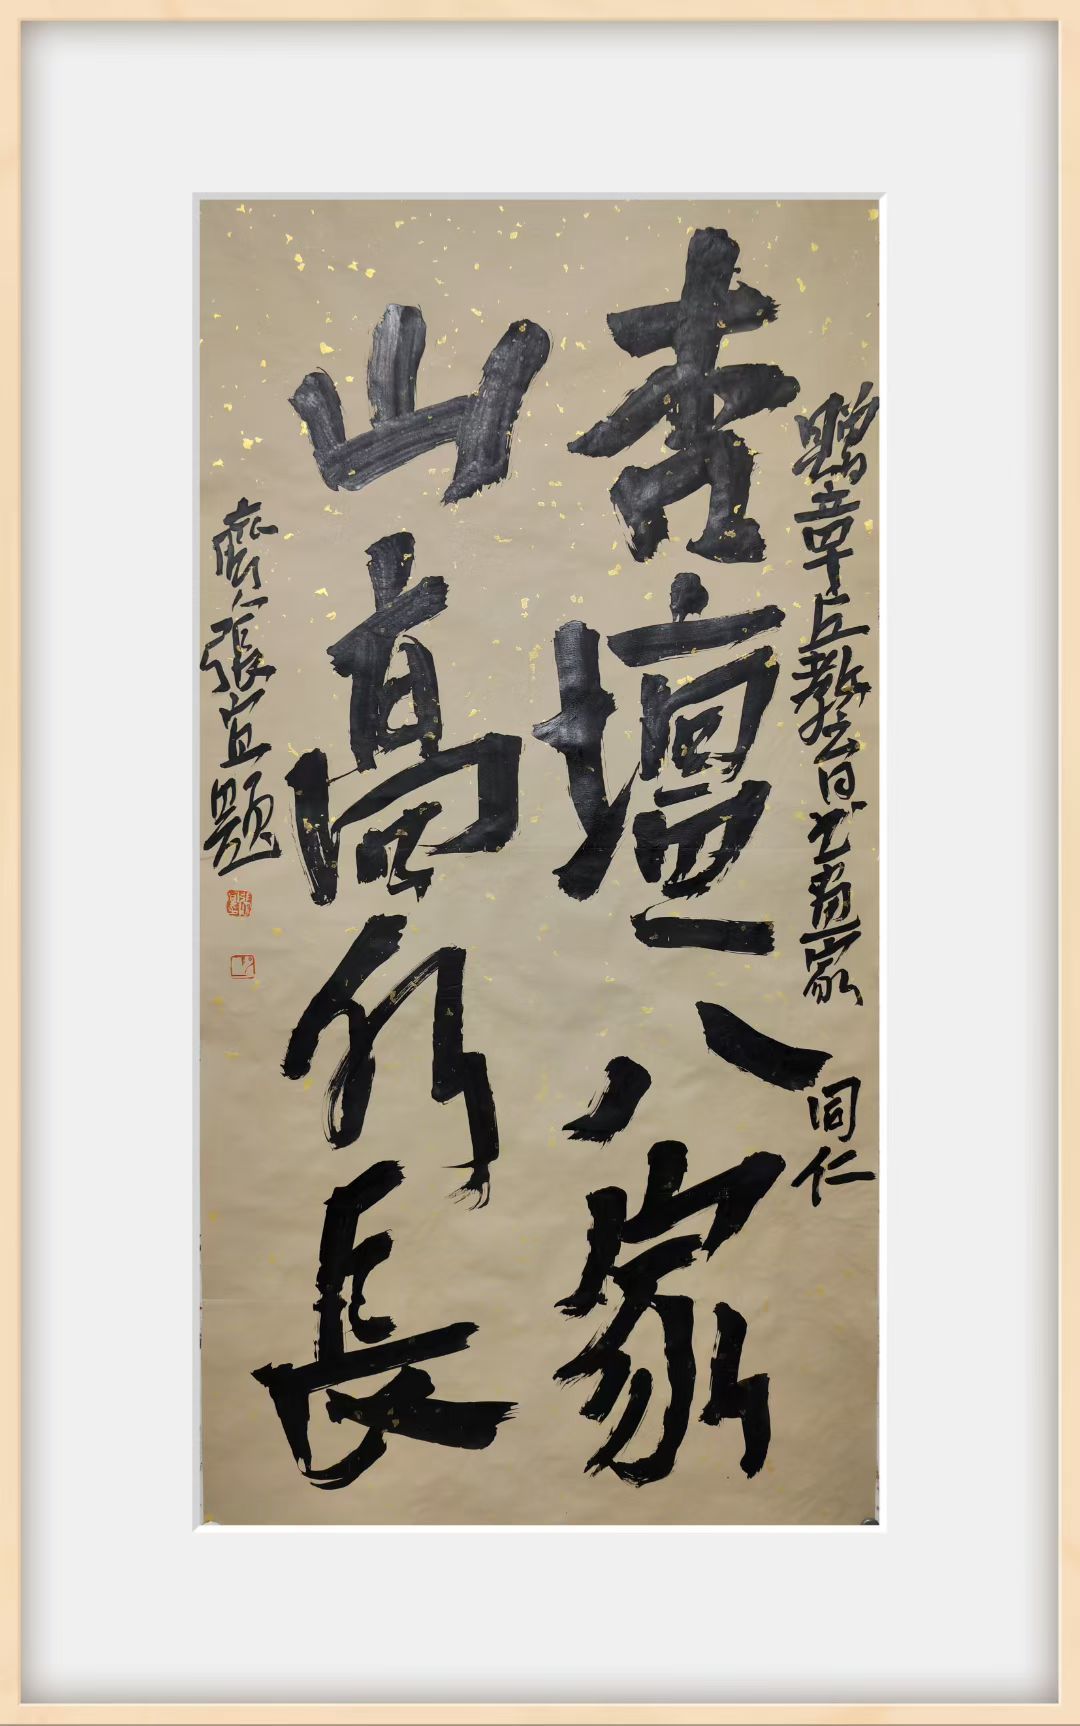 贈章丘教育书畫家 同仁
杏壇八家
山高水長
齊人張宜題